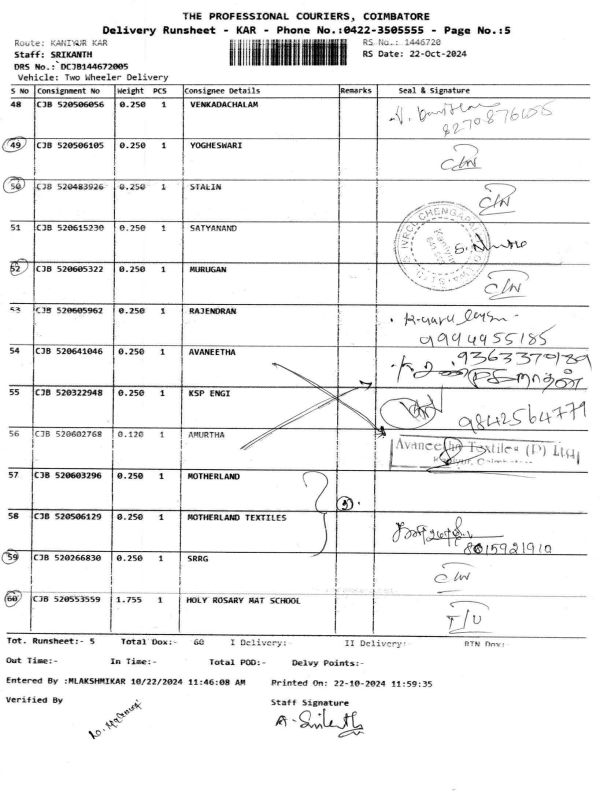 THE PROFESSIONAL COURIERS, COIMBATORE
Delivery Runsheet - KAR - Phone No.:0422-3505555 - Page No.:5
Route: KANIYUR KAR RS No.: 1446720
Staff: SRIKANTH RS Date: 22-Oct-2024
DRS No.: DCJB144672005
Vehicle: Two Wheeler Delivery
S No Consignment No Weight PCS Consignee Details Remarks Seal & Signature
48 CJB 520506056 0.250 1 VENKADACHALAM
8270876655
49 CJB 520506105 0.250 1 YOGHESWARI C/N
50 CJB 520483926 0.250 1 STALIN C/N
51 CJB 520615230 0.250 1 SATYANAND
52 CJB 520605322 0.250 1 MURUGAN C/N
53 CJB 520605962 0.250 1 RAJENDRAN
9994955185
54 CJB 520641046 0.250 1 AVANEETHA 9363370189
55 CJB 520322948 0.250 1 KSP ENGI 9842564779
56 CJB 520602768 0.120 1 AMURTHA Avaneetha Textiles (P) Ltd
57 CJB 520603296 0.250 1 MOTHERLAND
58 CJB 520506129 0.250 1 MOTHERLAND TEXTILES
8015921910
59 CJB 520266830 0.250 1 SRRG C/N
60 CJB 520553559 1.755 1 HOLY ROSARY MAT SCHOOL T/U
Tot. Runsheet:- 5 Total Dox:- 60 I Delivery:- II Delivery:- RTN Dox:-
Out Time:- In Time:- Total POD:- Delvy Points:-
Entered By :MLAKSHMIKAR 10/22/2024 11:46:08 AM Printed On: 22-10-2024 11:59:35
Verified By Staff Signature